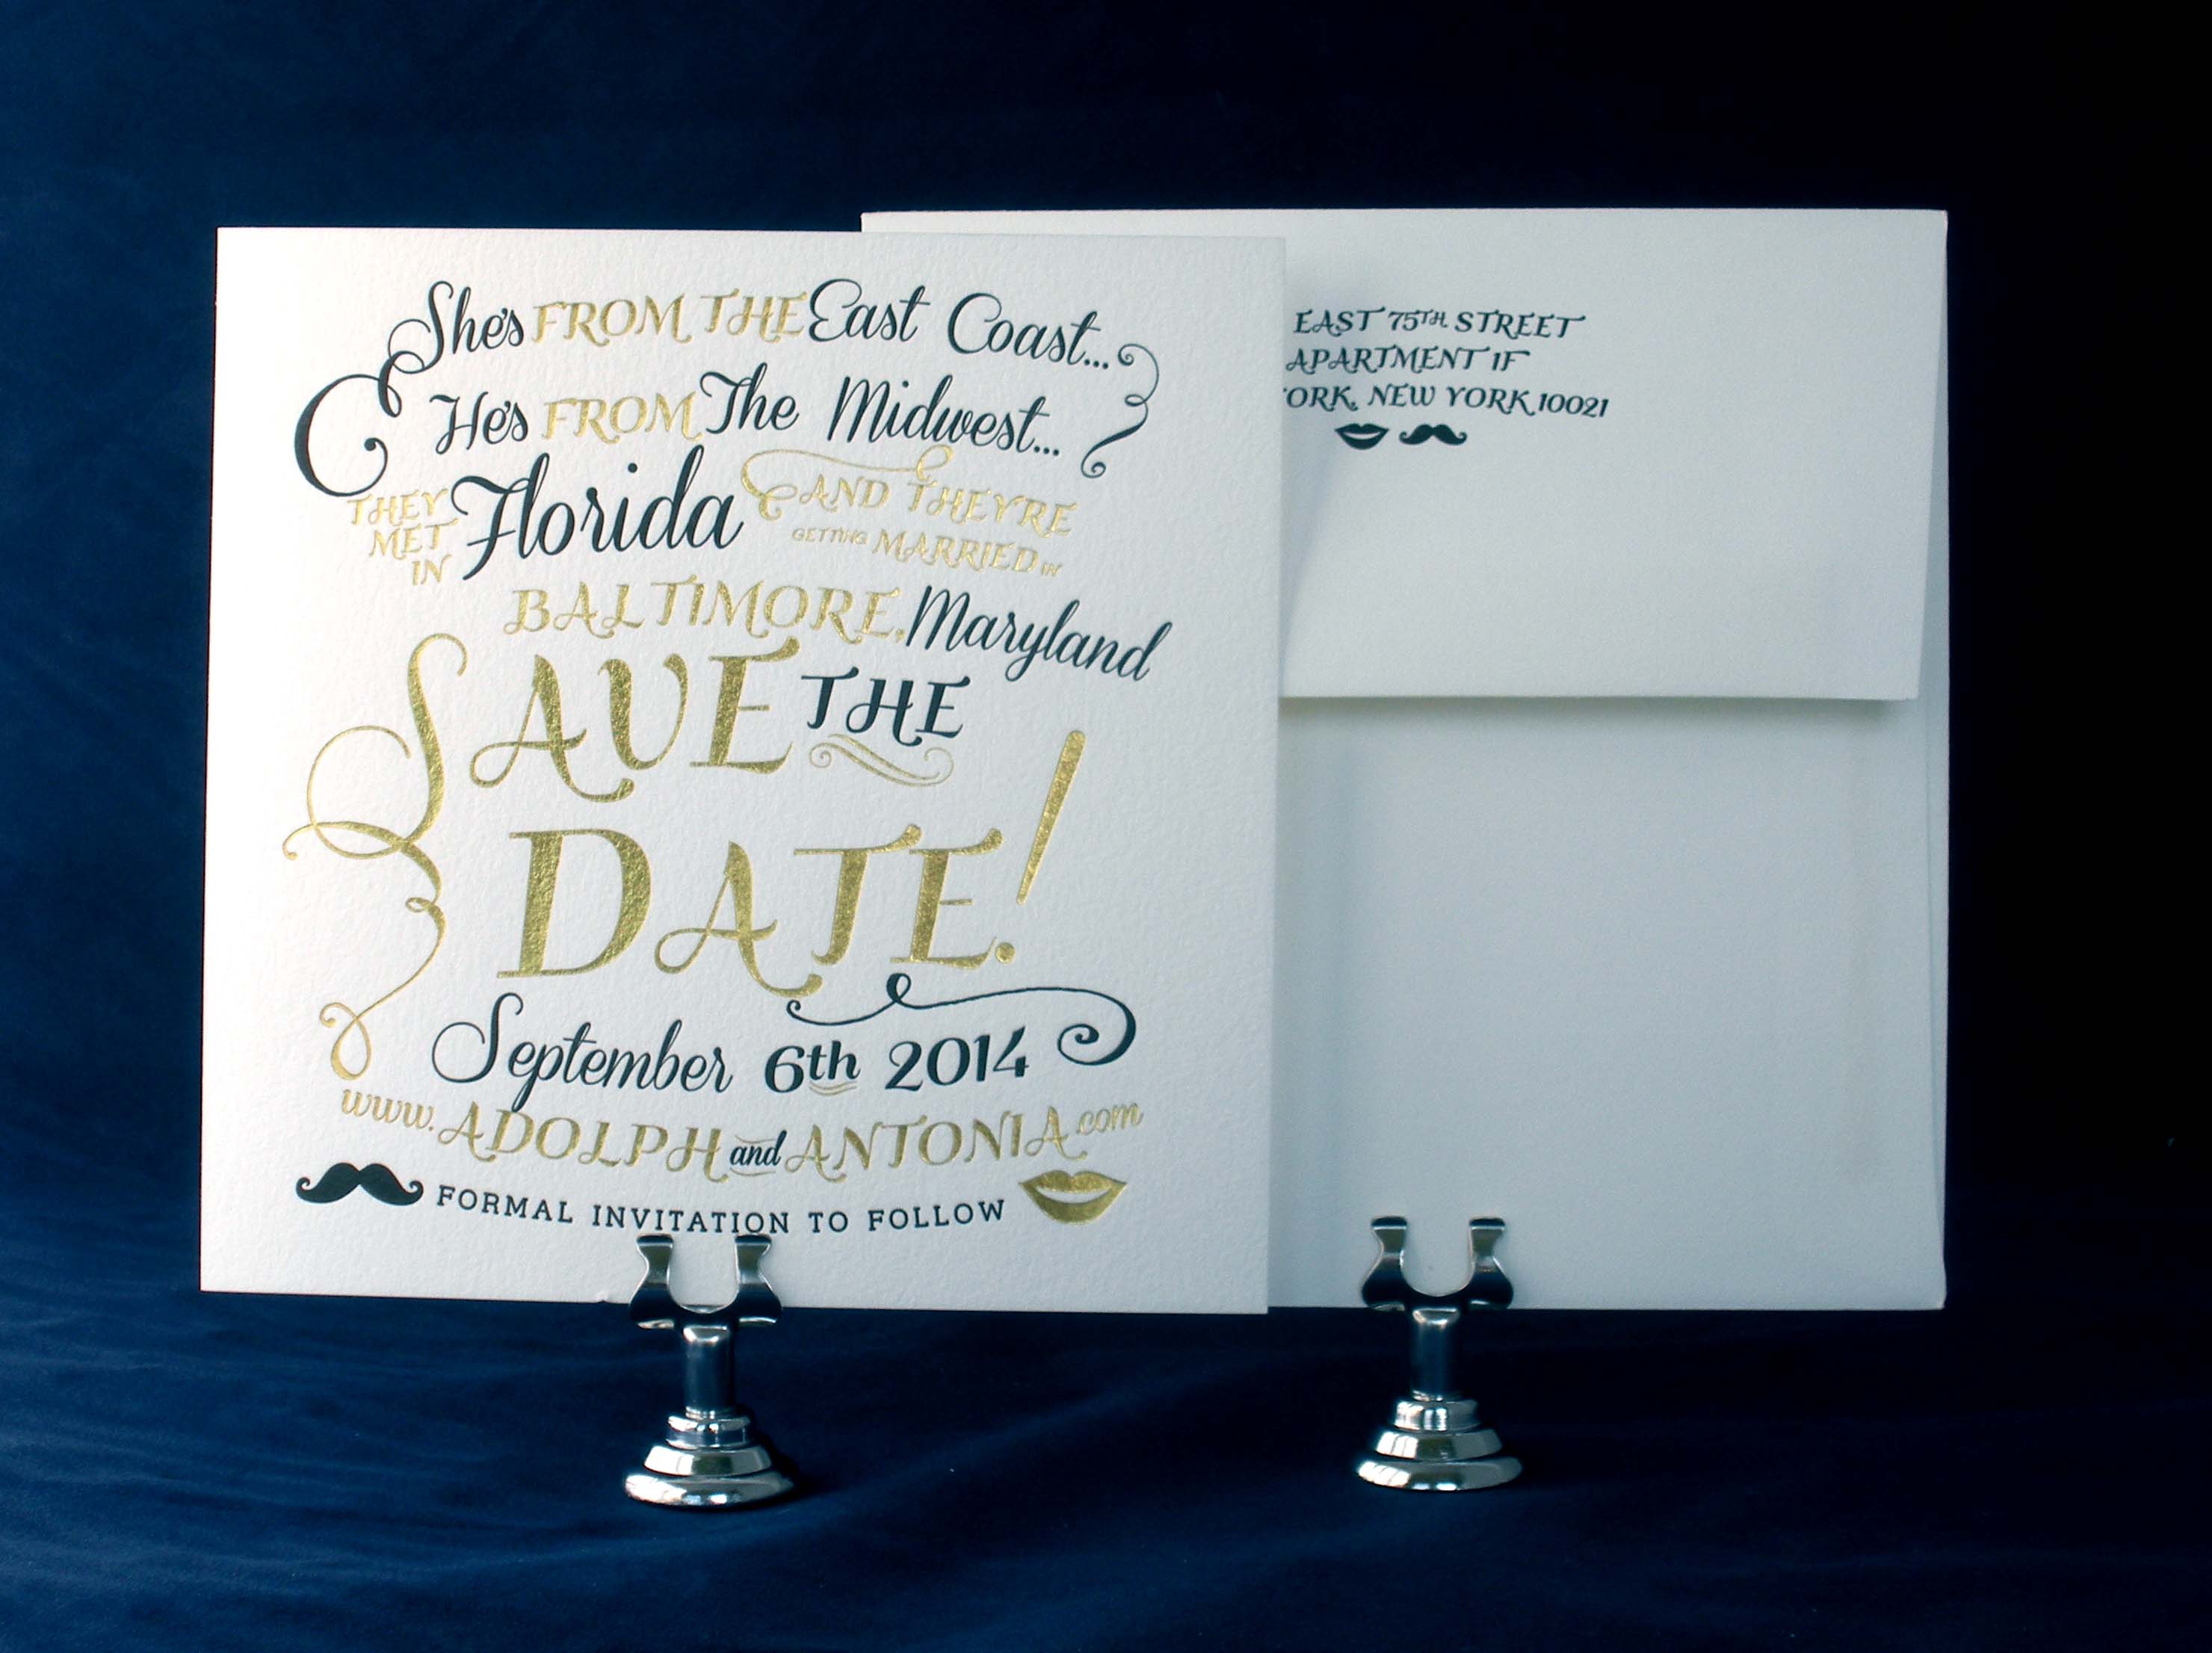 She's FROM THE East Coast...
He's FROM The Midwest...
THEY MET IN Florida AND THEYRE GETTING MARRIED IN
BALTIMORE, Maryland
SAVE THE
DATE!
September 6th 2014
www.ADOLPH and ANTONIA.com
FORMAL INVITATION TO FOLLOW
EAST 75TH STREET
APARTMENT 1F
ORK, NEW YORK 10021